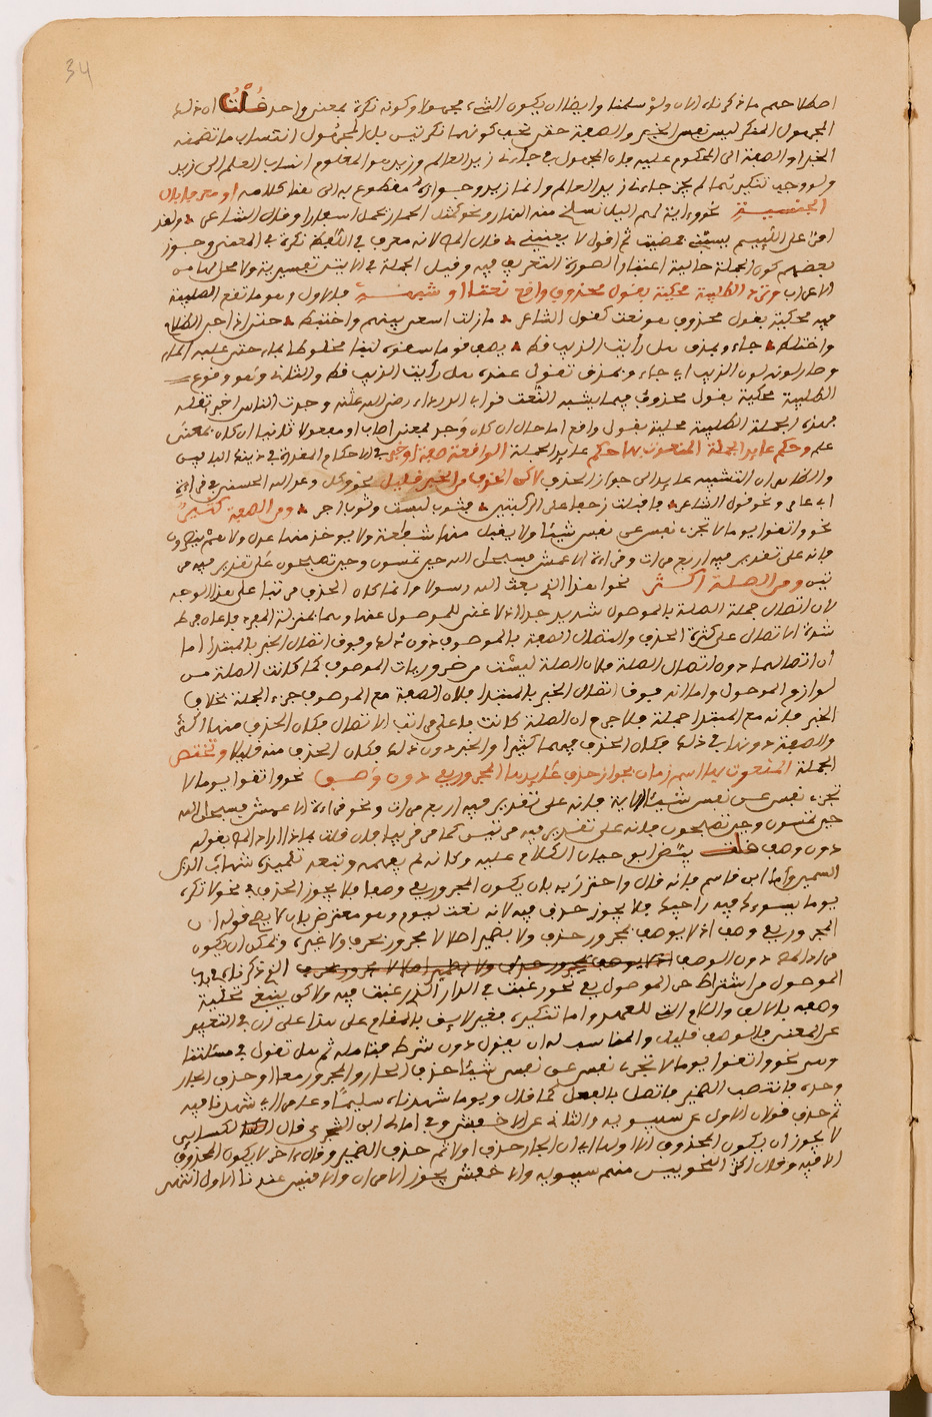 34
اصطلاحهم ما ذكرتك الان ولئن سلمنا وايضا لان يكون الشيء مجهولا وكونه نكرة بمعنى واحد قلت ان ذلك
المجهول المنكر ليس نفس الخبر والصفة حتى يجب كونهما نكرتين بل المجهول انتساب ما تضمنه
الخبر او الصفة الى المحكوم عليه فان المجهول في جاءني زيد العالم وزيد هو المعلوم انتساب العلم الى زيد
ولو وجب تنكيرهما لم يجز جاءني زيد العالم وانا زيد وجوازه مقطوع به الى هنا كلامه او معرفا بال
الجنسية نحو وءاية لهم اليل نسلخ منه النهار ونحو كمثل الحمار يحمل اسفارا وقال الشاعر ولقد
امر على اللئيم يسبني فمضيت ثم اقول لا يعنيني فلان ال لانه معرف في اللفظ نكرة في المعنى وجوز
بعضهم كون الجملة حالية اعتبارا لصورة التعريف فيه وقيل الجملة في الايتين تفسيرية ولا محل لها من
الاعراب وترد الطلبية محكية بقول محذوف واقع نعتا او شبهه فالاول وهو ما تقع الطلبية
فيه محكية بقول محذوف هو نعت كقول الشاعر ما زلت اسعى بينهم واختبط حتى اذا جن الظلام
واختلط جاءوا بمذق هل رأيت الذيب قط يصف قوما سقوه لبنا مخلوطا بماء حتى غلب الماء
وصار لونه لون الذيب اي جاءوا بمذق تقول عنده هل رأيت الذيب قط والثاني وهو وقوع
الطلبية محكية بقول محذوف فيما يشبه النعت قول ابي الدرداء رضي الله عنه وجدت الناس اخبر تقله
فهذه الجملة الطلبية محكية بقول واقع اما حال ان كان وجد بمعنى اصاب او مفعولا ثانيا ان كان بمعنى
علم وحكم عايد الجملة المنعوت بها حكم عايد الجملة الواقعة صلة او خبرا في الاحكام المقررة في ذينك البابين
والظاهر ان التشبيه عايد الى جواز الحذف لاكن الحذف من الخبر قليل نحو وكل وعد الله الحسنى في قراءة
ابن عامر ونحو قول الشاعر فاقبلت زحفا على الركبتين فثوب لبست وثوب اجر ومن الصفة كثير
نحو واتقوا يوما لا تجزي نفس عن نفس شيئا ولا يقبل منها شفاعة ولا يوخذ منها عدل ولا هم ينصرون
فانه على تقدير فيه اربع مرات وقراءة الاعمش فسبحان الله حين تمسون وحين تصبحون على تقدير فيه مر
تين ومن الصلة اكثر نحو اهذا الذي بعث الله رسولا وانما كان الحذف مرتبا على هذا الوجه
لان اتصال جملة الصلة بالموصول شديد جدا اذ لا غنى للموصول عنها وهما بمنزلة المفرد فاعان فرط
شدة الاتصال على كثرة الحذف واتصال الصفة بالموصوف دون ذلك وفوق اتصال الخبر بالمبتدا اما
ان اتصالهما دون اتصال الصلة فلان الصلة ليست من ضروريات الموصوف كما كانت الصلة من
لوازم الموصول واما انه فوق اتصال الخبر بالمبتدا فلان الصفة مع الموصوف جزء الجملة بخلاف
الخبر فانه مع المبتدا جملة فلا جرم ان الصلة كانت باعلى مراتب الاتصال فكان الحذف منها اكثر
والصفة دونها في ذلك فكان الحذف فيهما كثيرا والخبر دون ذلك فكان الحذف منه قليلا وتختص
الجملة المنعوت بها اسم زمان بجواز حذف عايدها المجرور بفي دون وصف نحو واتقوا يوما لا
تجزي نفس عن نفس شيئا الاية فانه على تقدير فيه اربع مرات ونحو قراءة الاعمش فسبحان الله
حين تمسون وحين تصبحون فانه على تقدير فيه مرتين كما مر قريبا فان قلت ماذا اراد الم بقوله
دون وصف قلت يشير ابو حيان الكلام عليه وكانه لم يفهمه وتبعه تلميذه شهاب الدين
السمين واما ابن قاسم فانه قال واحترز به بان يكون المجرور بفي وصفا فلا يجوز الحذف في نحو لا تكره
يوما يسوءك فيه راحتها فلا يجوز حذف فيه لانه نعت ليوم وهو معترض بان لا يصح قوله ان
المجرور بفي وصف اذ لا يوصف بمجرور حذف ولا بضمير اصلا لا مجرور بحرف ولا غيره ويمكن ان يكون
مراد الم دون الوصف الذي ذكرناه في باب
الموصول من اشتراط جر الموصول بفي نحو رغبت في الدار التي رغبت فيه ولا كن ينبغي تحلية
وصف بالالف واللام التي للعهد واما تنكيره فغير لايق بالمقام على هذا على ان في التعبير
عن المعنى بالوصف قليل والمناسب له ان يقول دون شرط فتامله ثم هل تقول في مسئلتنا
وهي نحو واتقوا يوما لا تجزي نفس عن نفس شيئا حذف الجار والمجرور معا او حذف الجار
وحده فانتصب الضمير واتصل بالفعل كما قال ويوما شهدناه سليما وعامرا اي شهدنا فيه
ثم حذف قولان الاول عن سيبويه والثاني عن الاخفش وفي امالي ابن الشجري قال الكسائي
لا يجوز ان يكون المحذوف الا الهاء اي ان الجار حذف اولا ثم حذف الضمير وقال ءاخر لا يكون المحذوف
الا فيه وقال اكثر النحويين منهم سيبويه والاخفش يجوز الامران والاقيس عندنا الاول انتهى